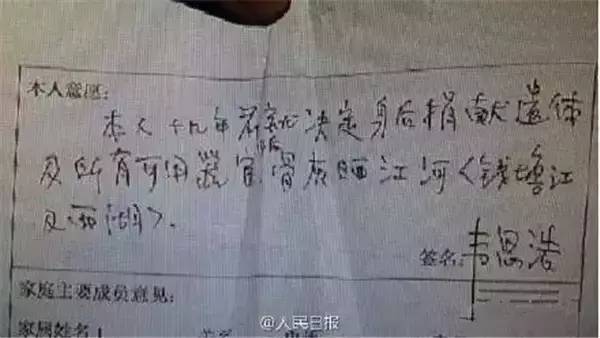 本人意愿:
本人十九年前就决定身后捐献遗体
及所有可用器官,骨灰洒江河<钱塘江
及西湖>.
签名:韦思浩
家庭主要成员意见:
家属姓名
@人民日报